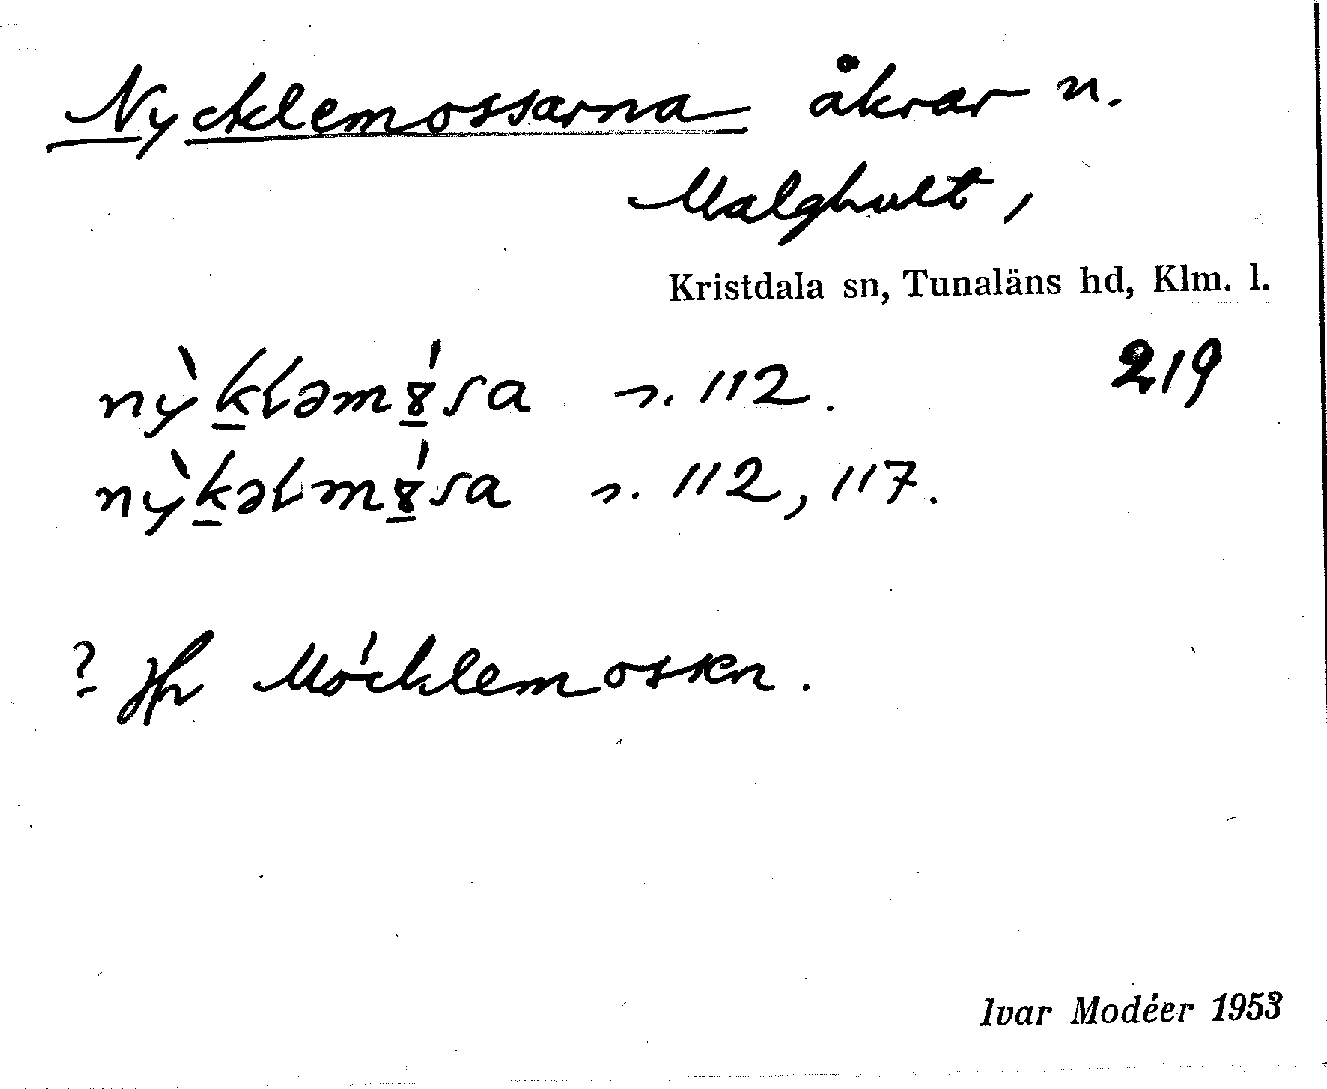 Nycklemossarna åkrar n.
Malghult,
Kristdala sn, Tunaläns hd, Klm. l.
219
ny̆̀k̲ləmɤ̲́sa s. 112.
nỳk̲əlmɤ̲́sa s. 112, 117.
? Jfr Möcklemossen.
Ivar Modéer 1953